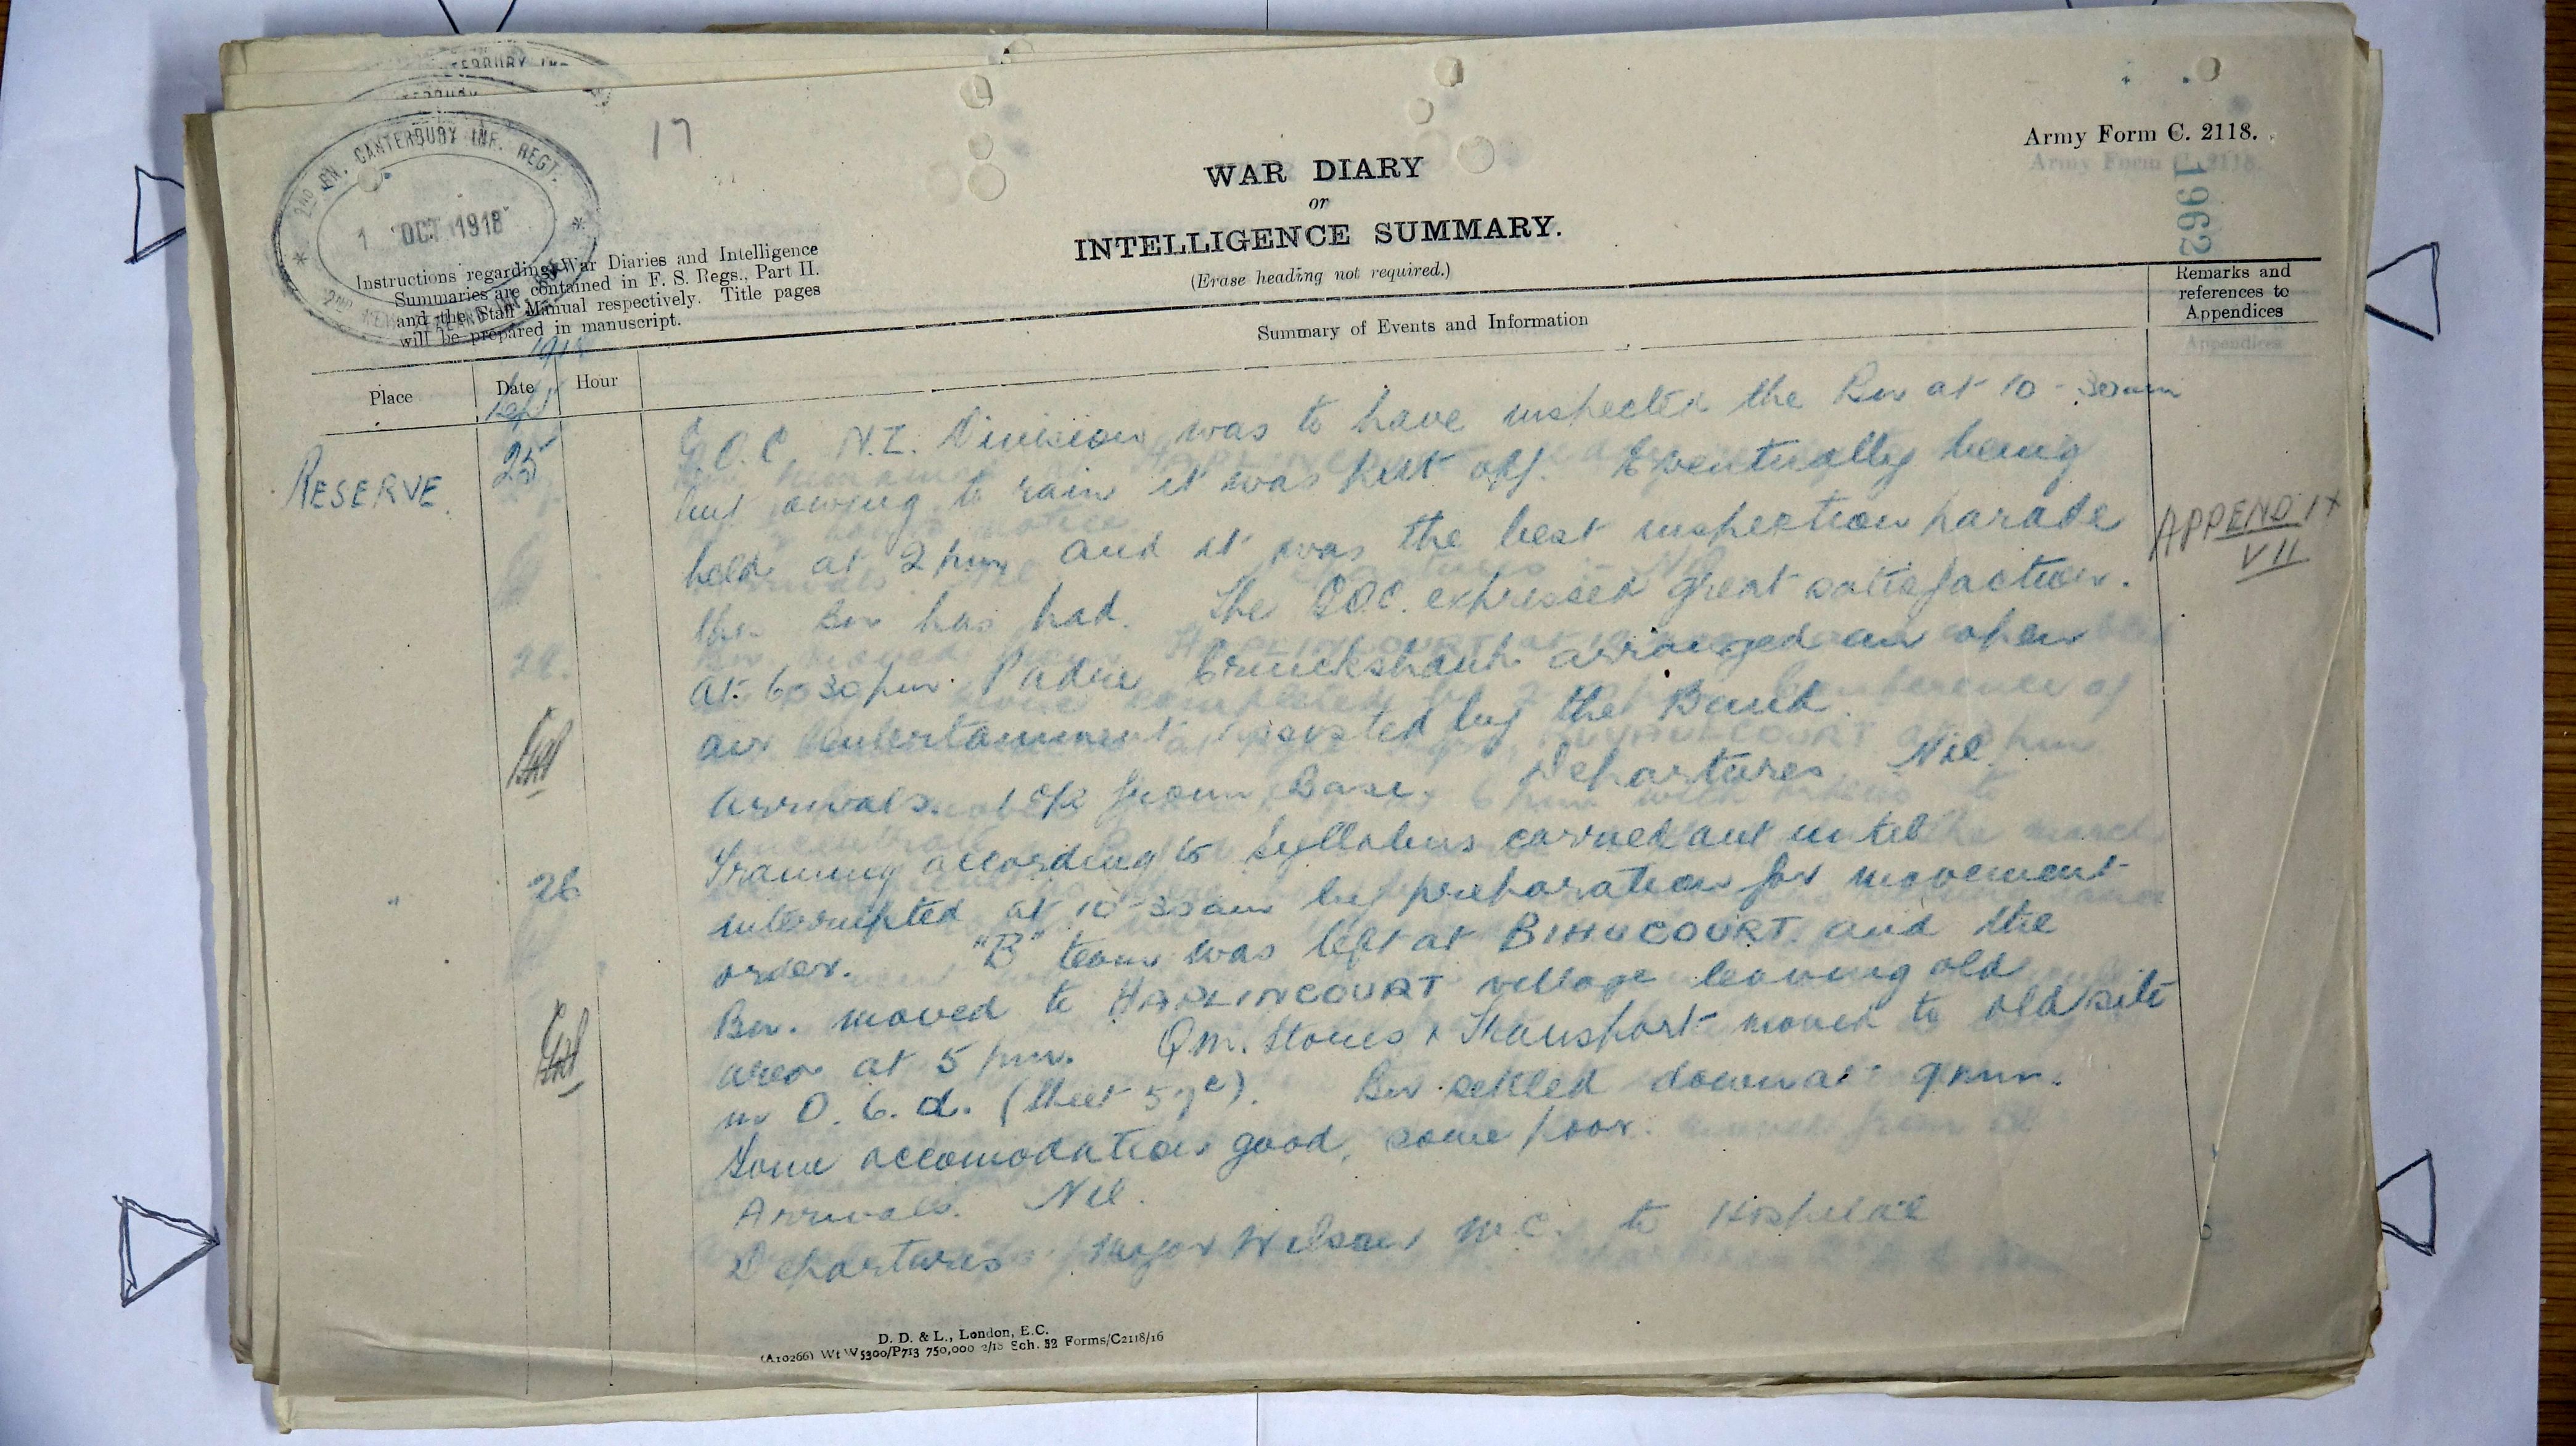 17
Army Form C. 2118.
1962
WAR DIARY
or
INTELLIGENCE SUMMARY.
(Erase heading not required.)
2ND BN. CANTERBURY INF. REGT.
1 OCT 1918
Instructions regarding War Diaries and Intelligence
Summaries are contained in F. S. Regs., Part II.
and the Staff Manual respectively. Title pages
will be prepared in manuscript.
Remarks and
references to
Appendices
Summary of Events and Information
1918
Place Date Hour
Sept
RESERVE. 25 G.O.C. N.Z. Division was to have inspected the Bn at 10-30am
but owing to rain it was put off. Eventually being
held at 2 pm and it was the best inspection parade
the Bn has had. The G.O.C. expressed great satisfaction.
APPENDIX
VII
at 6-30 pm Padre Cruickshank arranged an open
air entertainment assisted by the Band.
Arrivals. 1 OR from Base. Departures Nil.
" 26 Training according to Syllabus carried out until
interrupted at 10-30am by preparation for movement
order. "B" team was left at BIHUCOURT. and the
Bn. moved to HAPLINCOURT village leaving old
area at 5 pm. Qm. Stores & Transport moved to old site
in O. 6. d. (Sheet 57c). Bn settled down at 9pm.
Some accomodation good, some poor.
Arrivals. Nil.
Departures Major Wilson M.C. to Hospital
D. D. & L., London, E.C.
(A10266) Wt W5300/P713 750,000 2/18 Sch. 52 Forms/C2118/16